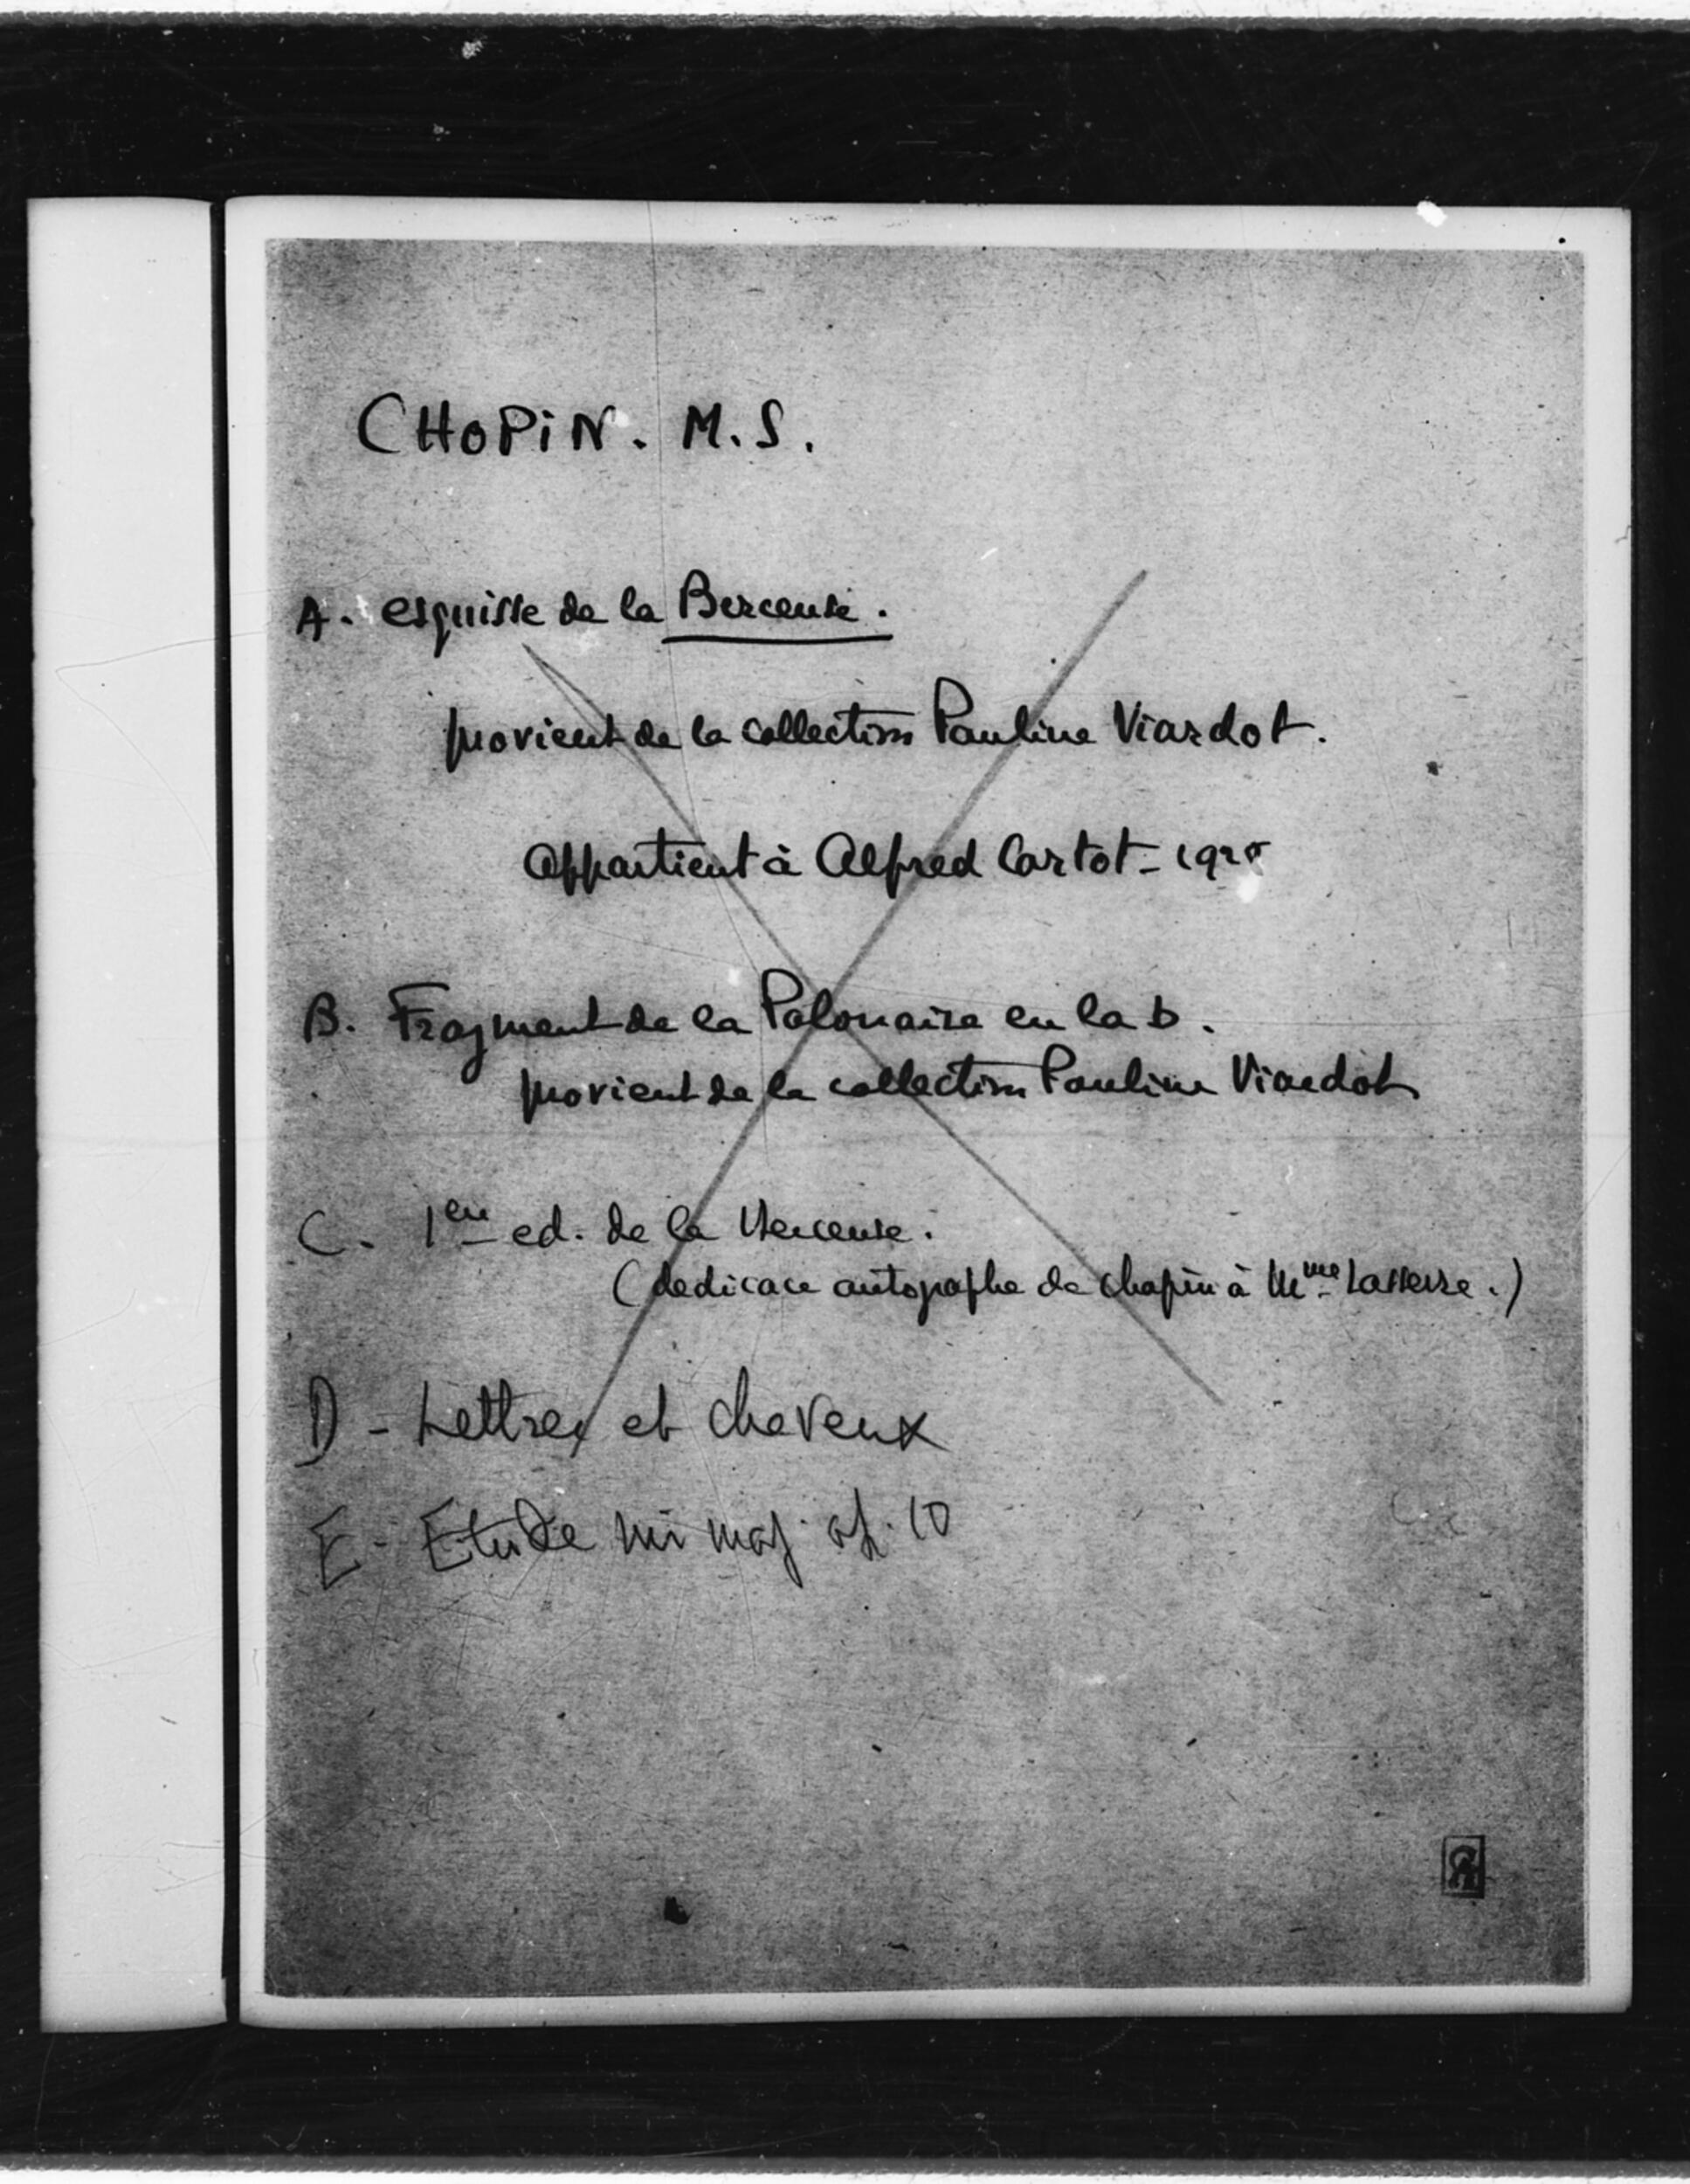 CHOPIN. M.S.
A. esquisse de la Berceuse.
provient de la collection Pauline Viardot.
appartient à Alfred Cortot - 192
B. Fragment de la Polonaise en la b.
provient de la collection Pauline Viardot
C. 1ere ed. de la Berceuse.
(dedicace autographe de Chopin à Mme Lasserre.)
D - Lettres et cheveux
E - Etude mi maj. op. 10